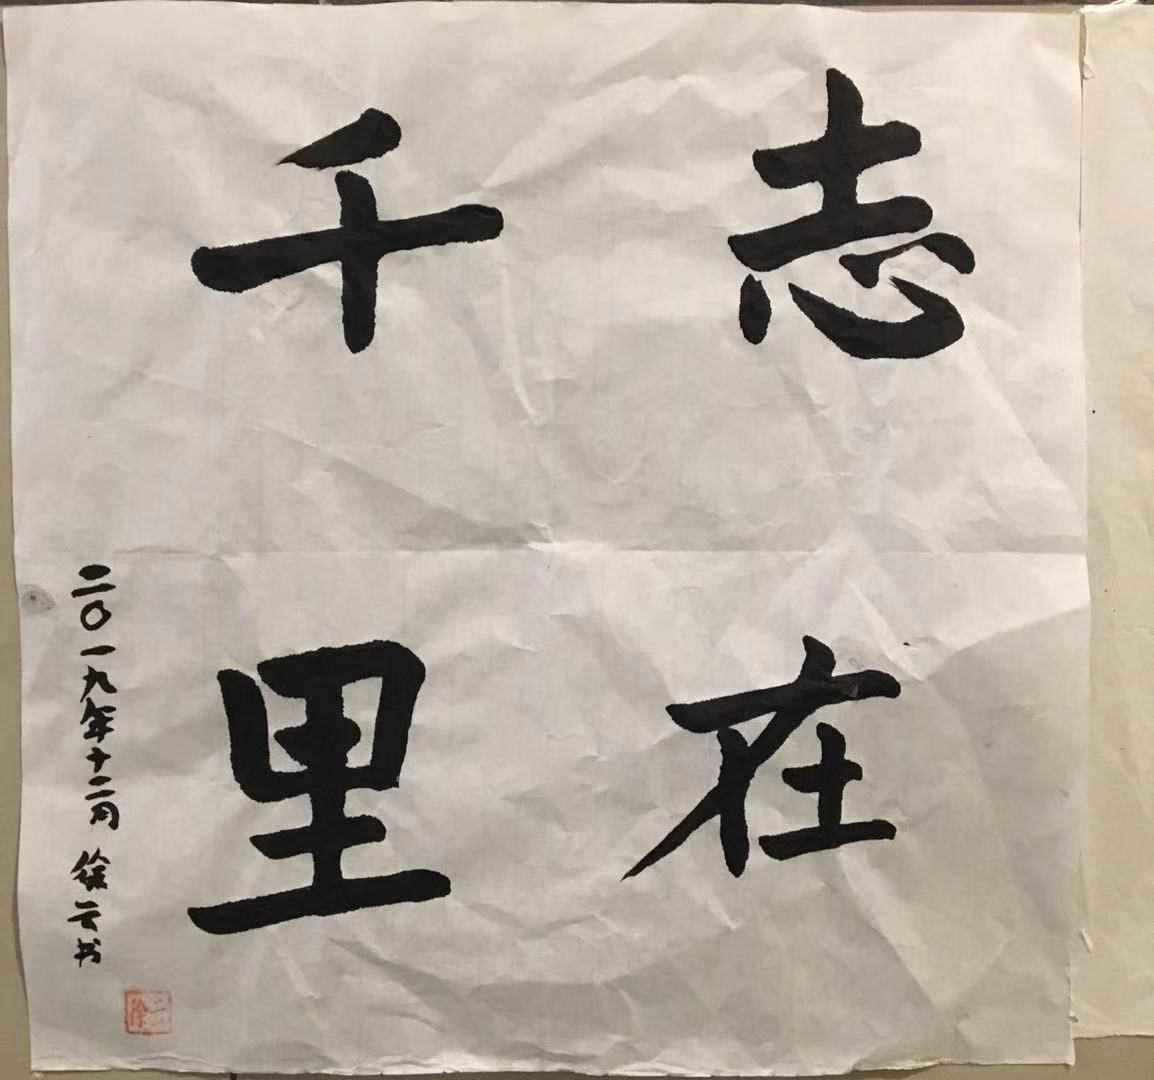 志在
千里
二〇一九年十二月 徐二云书